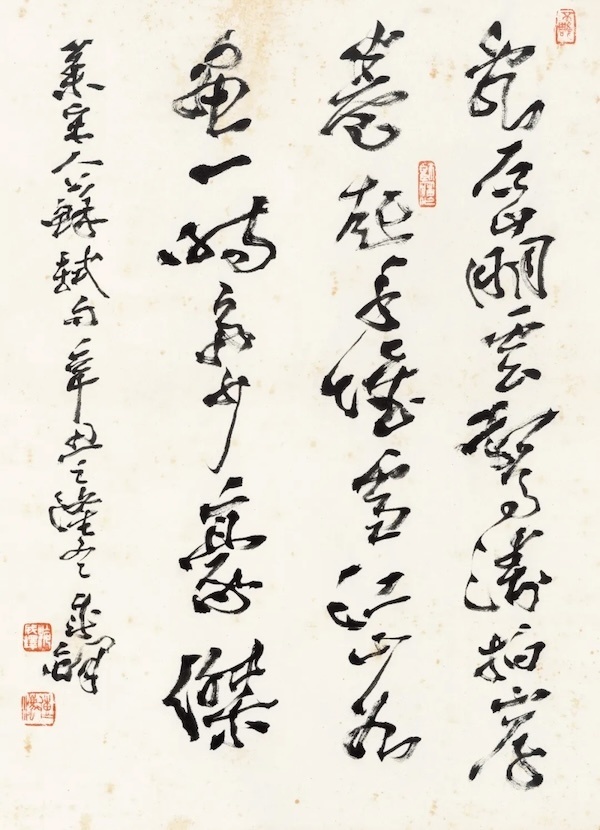 亂石崩雲驚濤拍岸
卷起千堆雪江山如
畫一時多少豪傑
宋人蘇軾句辛丑之隆冬